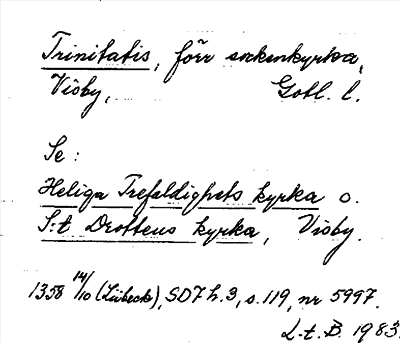 Trinitatis, förr sockenkyrka,
Visby, Gotl. l.
Se:
Heliga Trefaldighets kyrka o.
S:t Drotteus kyrka, Visby.
1358 14/10 (Lübeck), SD7 h. 3, s. 119, nr 5997.
L.t.B. 1983.